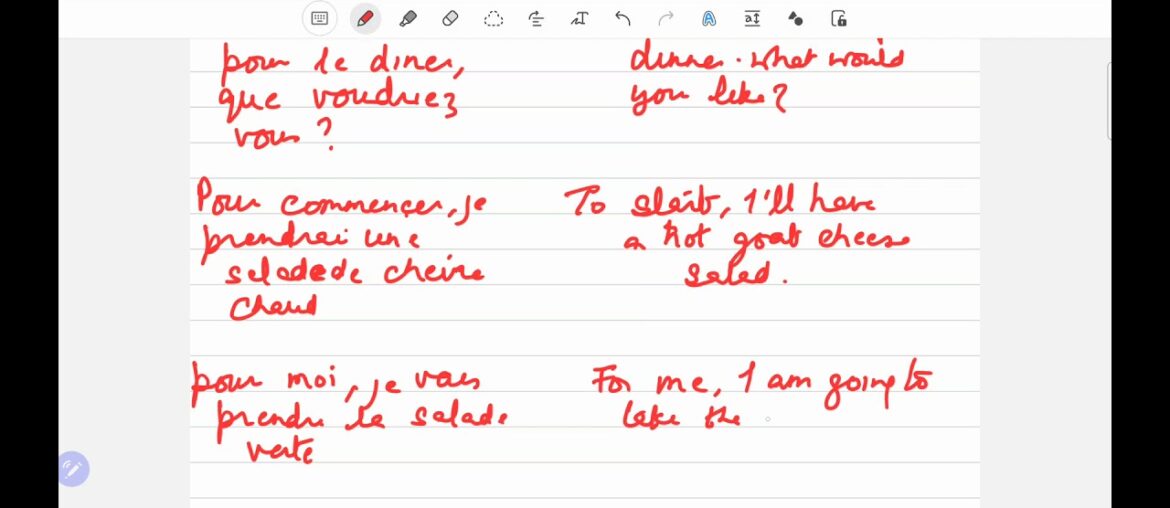 pour le diner,
que voudriez
vous ?
dinner. what would
you like?
Pour commencer, je
prendrai une
salade de chèvre
chaud
To start, I'll have
a hot goat cheese
salad.
pour moi, je vais
prendre la salade
verte
For me, I am going to
take the